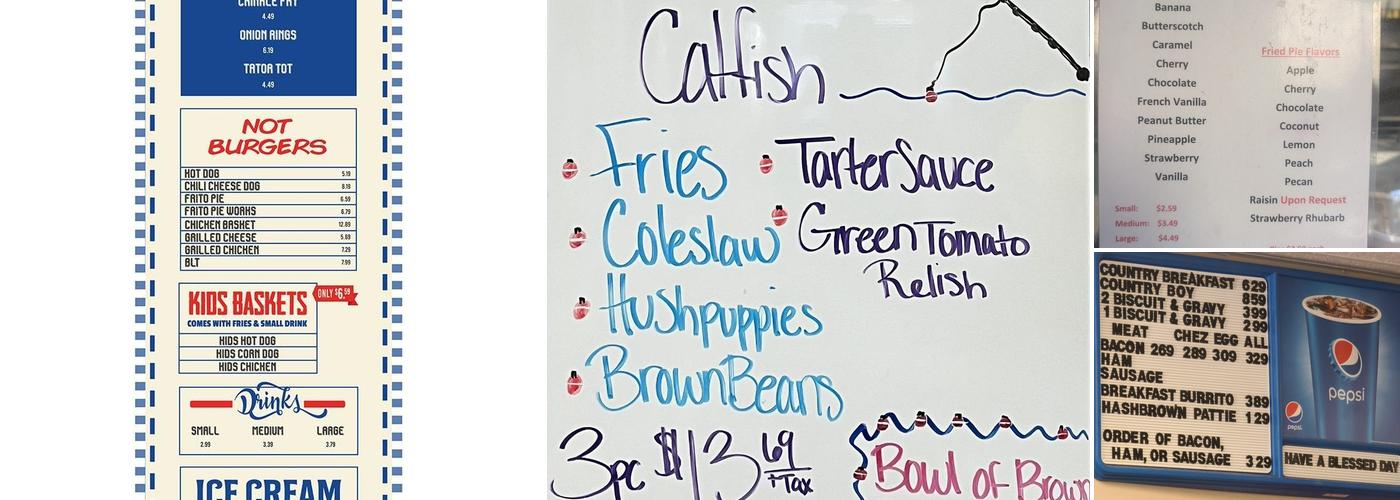 CRINKLE FRY
4.49
ONION RINGS
6.19
TATOR TOT
4.49
NOT
BURGERS
HOT DOG 5.19
CHILI CHEESE DOG 8.19
FRITO PIE 6.59
FRITO PIE WORKS 8.79
CHICKEN BASKET 12.89
GRILLED CHEESE 5.69
GRILLED CHICKEN 7.29
BLT 7.99
KIDS BASKETS
ONLY $6.59
COMES WITH FRIES & SMALL DRINK
KIDS HOT DOG
KIDS CORN DOG
KIDS CHICKEN
Drinks
SMALL MEDIUM LARGE
2.99 3.39 3.79
ICE CREAM
Catfish
Fries
Coleslaw
Hushpuppies
BrownBeans
TarterSauce
GreenTomato
Relish
3pc $13 69
+Tax
Bowl of Brown
Banana
Butterscotch
Caramel
Cherry
Chocolate
French Vanilla
Peanut Butter
Pineapple
Strawberry
Vanilla
Small: $2.59
Medium: $3.49
Large: $4.49
Fried Pie Flavors
Apple
Cherry
Chocolate
Coconut
Lemon
Peach
Pecan
Raisin Upon Request
Strawberry Rhubarb
COUNTRY BREAKFAST 629
COUNTRY BOY 859
2 BISCUIT & GRAVY 399
1 BISCUIT & GRAVY 299
MEAT CHEZ EGG ALL
BACON 269 289 309 329
HAM
SAUSAGE
BREAKFAST BURRITO 389
HASHBROWN PATTIE 129
ORDER OF BACON,
HAM, OR SAUSAGE 329
pepsi
pepsi
HAVE A BLESSED DAY